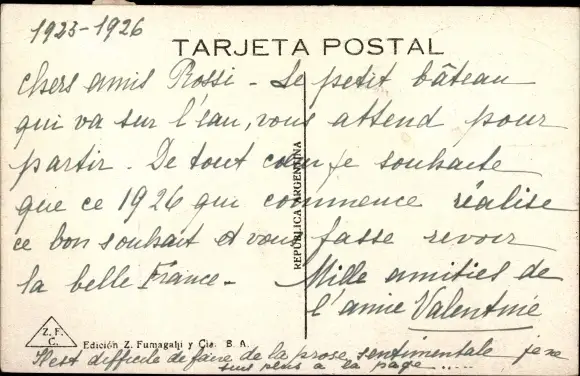 1923-1926
TARJETA POSTAL
Chers amis Rossi - Le petit bâteau
qui va sur l'eau, vous attend pour
partir. De tout coeur je souhaite
que ce 1926 qui commence réalise
ce bon souhait et vous fasse revoir
la belle France - Mille amitiés de
l'amie Valentine
REPUBLICA ARGENTINA
Z. F.
C.
Edición Z. Fumagalli y Cia. B. A.
Il est difficile de faire de la prose sentimentale je ne
suis plus à la page .....